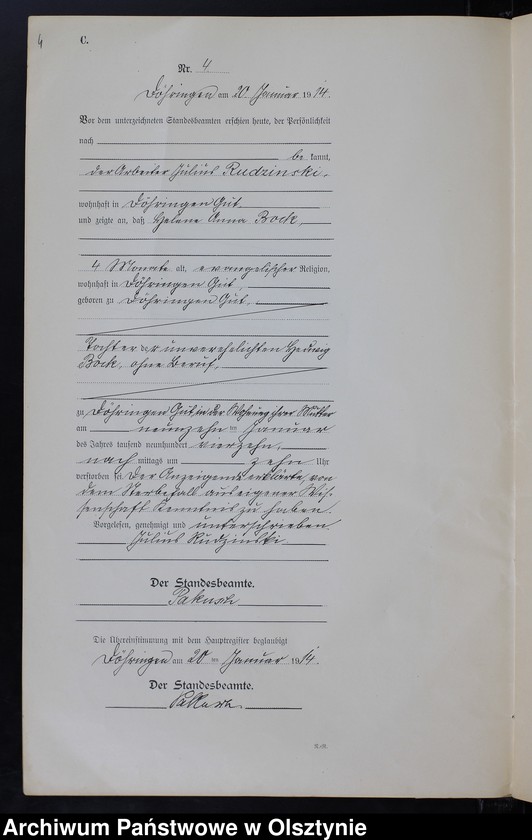 4
C.
Nr. 4.
Döhringen am 20. Januar 1914.
Vor dem unterzeichneten Standesbeamten erschien heute, der Persönlichkeit
nach
be kannt,
der Arbeiter Julius Rudzinski,
wohnhaft in Döhringen Gut
und zeigte an, daß Helene Anna Bock,
4 Monate alt, evangelischer Religion,
wohnhaft in Döhringen Gut,
geboren zu Döhringen Gut,
Tochter der unverehelichten Hedwig
Bock, ohne Beruf,
zu Döhringen Gut in der Wohnung ihrer Mutter
am neunzehn ten Januar
des Jahres tausend neunhundert vierzehn,
nach mittags um zehn Uhr
verstorben sei. Der Anzeigende erklärte, von
dem Sterbefall aus eigener Wis-
senschaft Kenntnis zu haben.
Vorgelesen, genehmigt und unterschrieben
Julius Rudzinski.
Der Standesbeamte.
Die Übereinstimmung mit dem Hauptregister beglaubigt
Döhringen am 20 ten Januar 1914.
Der Standesbeamte.
Archiwum Państwowe w Olsztynie